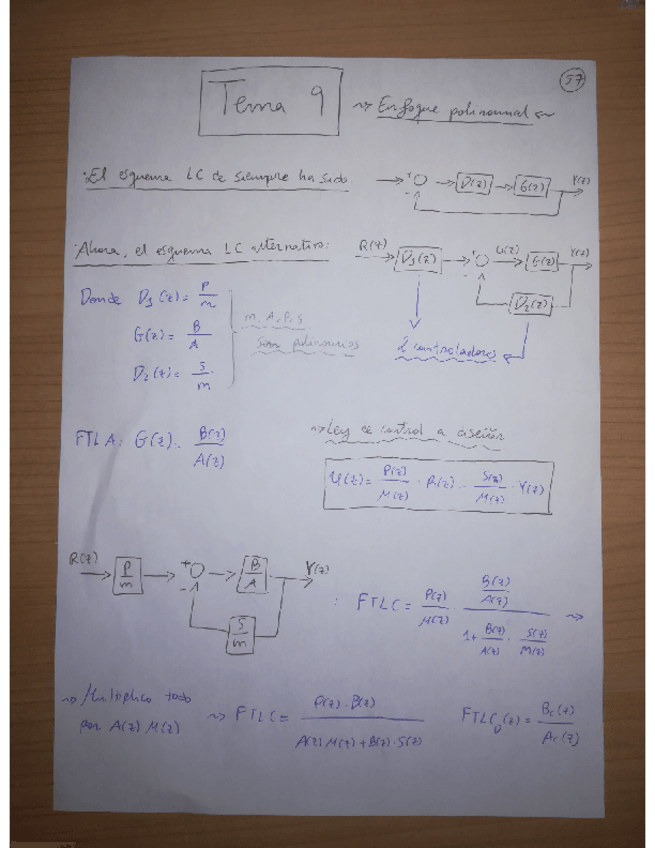 57
Tema 9 ~> Enfoque polinomial
· El esquema LC de siempre ha sido:
+ - D(z) G(z) Y(z)
· Ahora, el esquema LC alternativo:
R(z) D1(z) + - U(z) G(z) Y(z)
D2(z)
2 controladores
Donde D1(z) = P/m
G(z) = B/A
D2(z) = S/m
m, A, P, S
son polinomios
FTLA: G(z) = B(z)/A(z)
~> Ley de control a diseñar
U(z) = P(z)/M(z) · R(z) - S(z)/M(z) · Y(z)
R(z) P/m + - B/A Y(z)
S/m
: FTLC = P(z)/M(z) · (B(z)/A(z))/(1 + B(z)/A(z) · S(z)/M(z)) ~>
~> Multiplico todo
por A(z) M(z) ~> FTLC = P(z)·B(z)/(A(z) M(z) + B(z)·S(z))
FTLC_D(z) = Bc(z)/Ac(z)